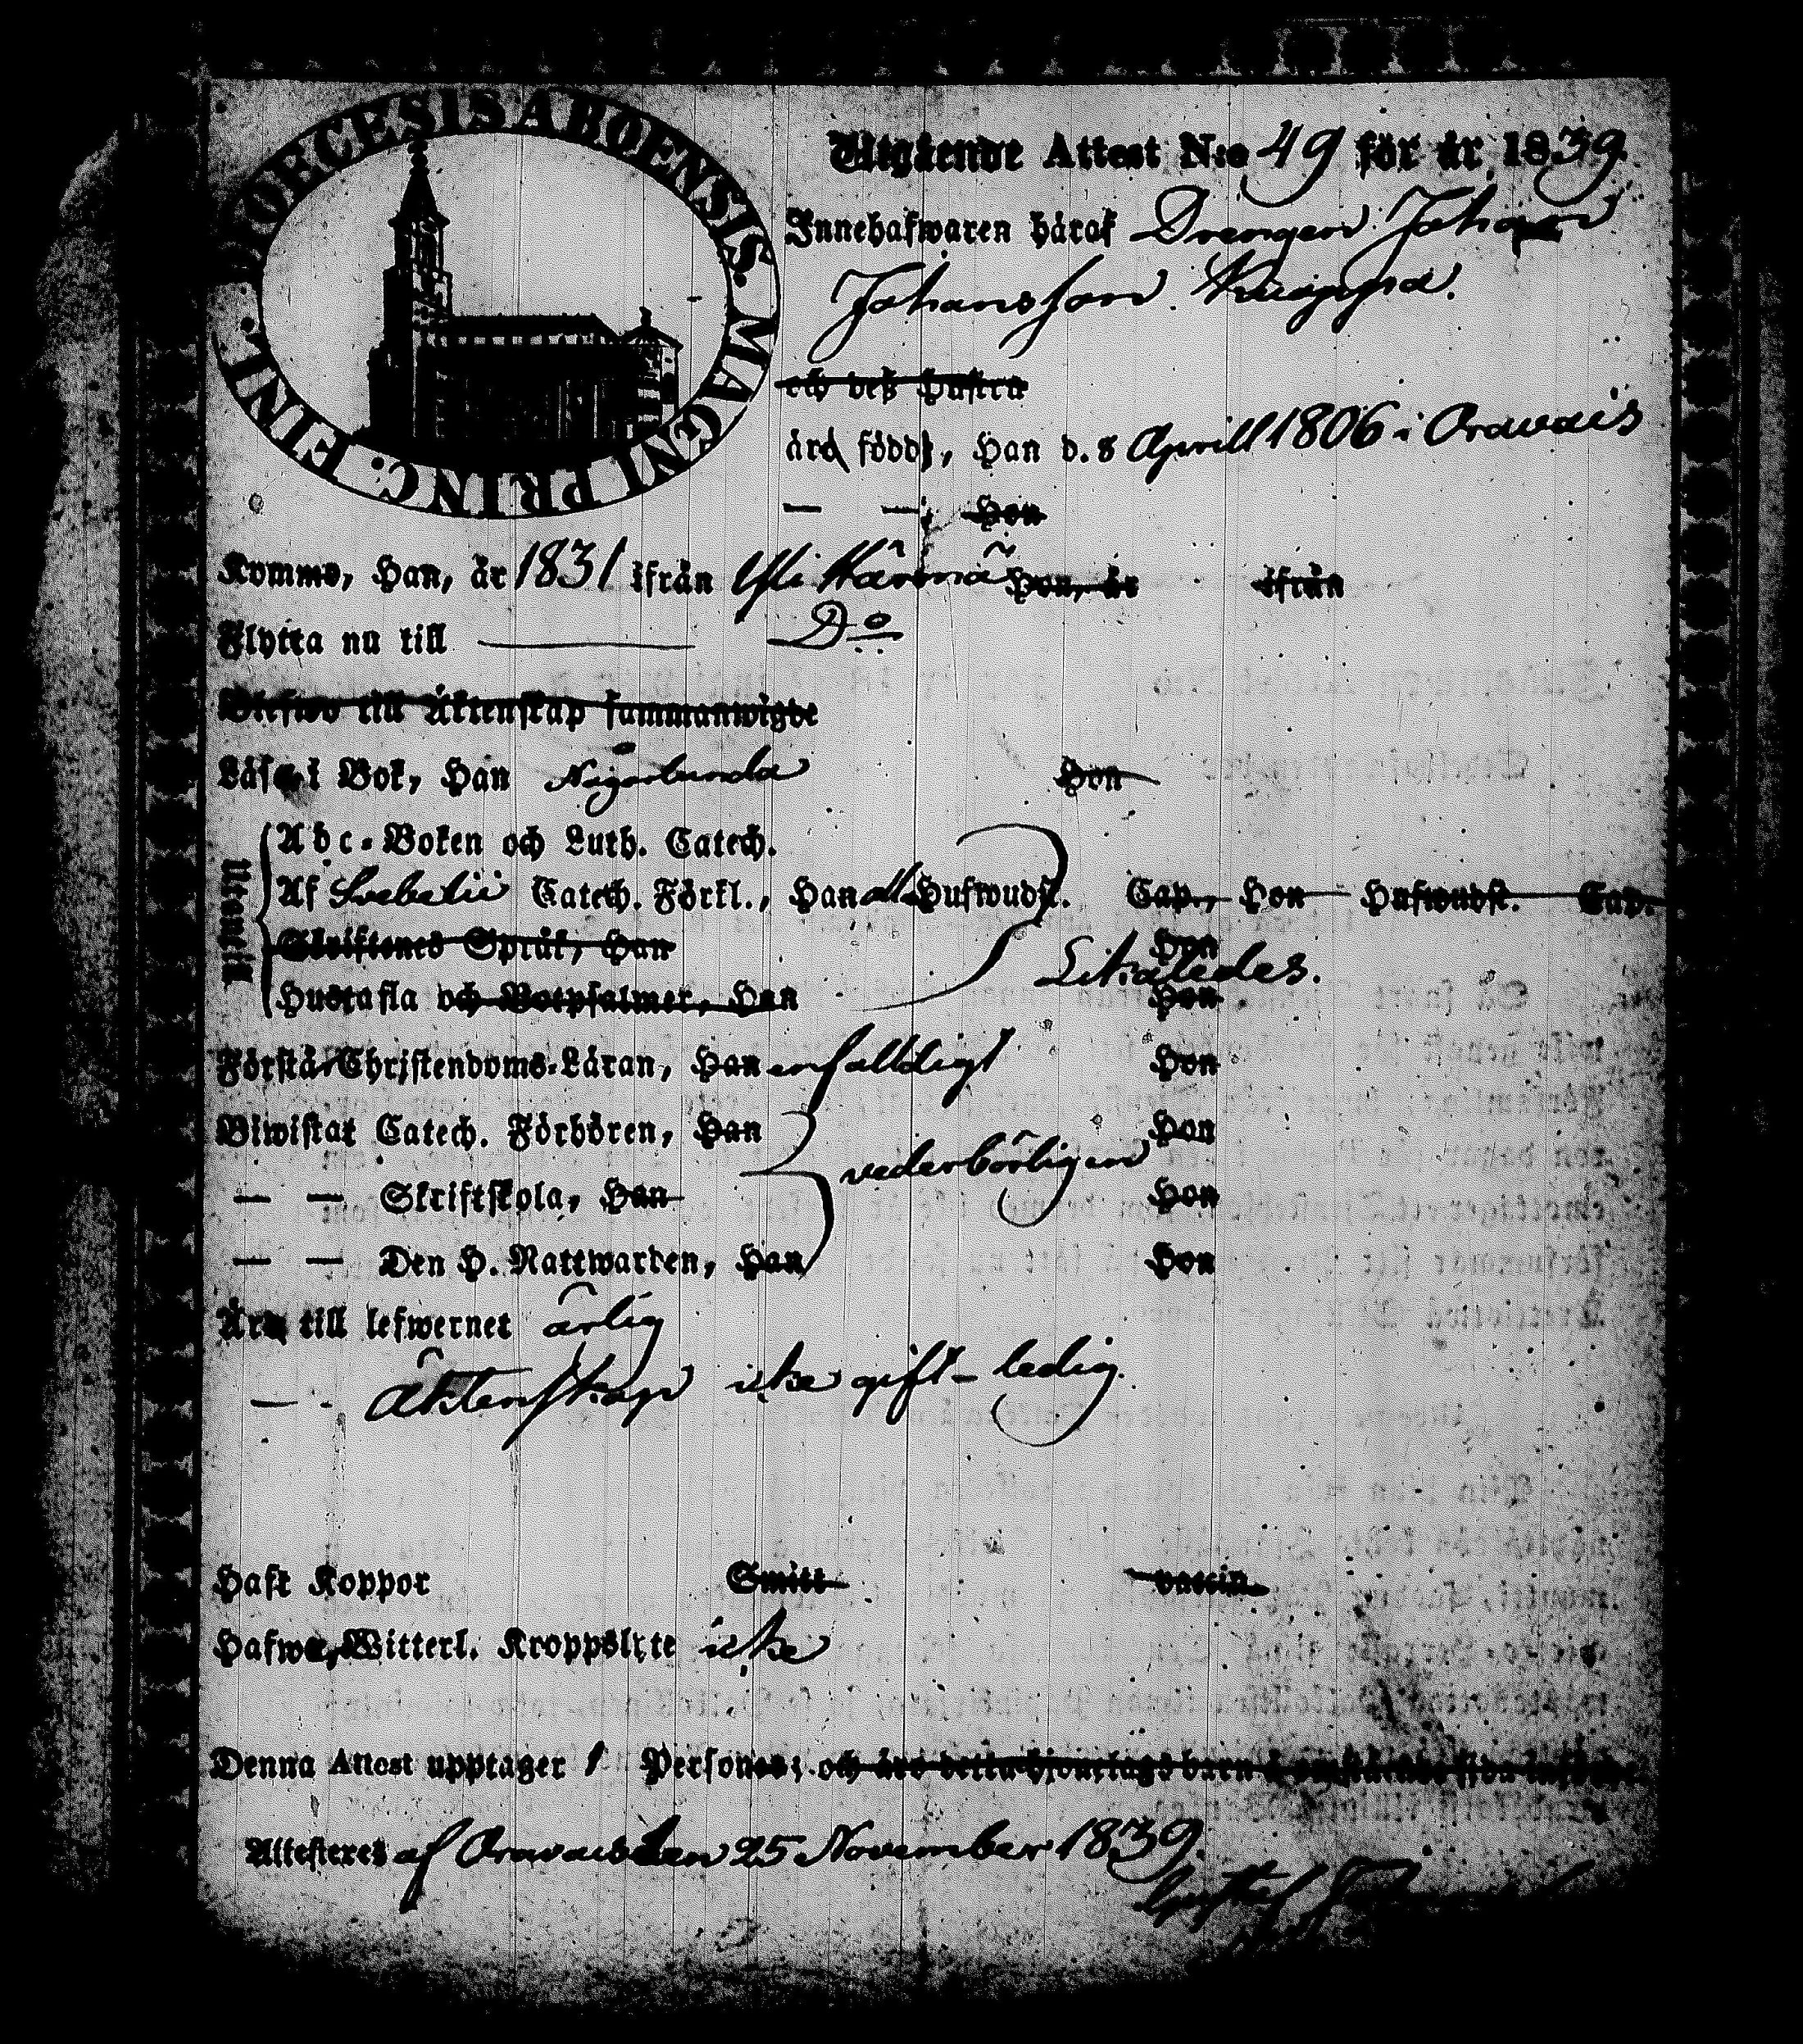 DIOECESIS ABOENSIS. MAGNI PRINC. FINL.
Utgående Attest N:o 49 för år 1839.
Innehafwaren häraf Drengen Johan
Johansson
och deß Hustru
äro född, Han d. 8 Aprill 1806 i Oravais
— — ; Hon
Komme, Han, år 1831 ifrån Yli Härmä Hon, år ifrån
Flytta nu till — Do
Blefwo till Äktenskap sammanwigde
Läsa i Bok, Han Någorlunda Hon
Utantill
Abc-Boken och Luth. Catech.
Af Svebelii Catech. Förkl., Han all Hufwudst. Cap., Hon Hufwudst. Cap.
Skriftenes Språk, Han Hon
Likaledes.
Hustafla och Botpsalmer, Han Hon
Förstå Christendoms-Läran, Han enfalldigt Hon
Biwistat Catech. Förhören, Han Hon
vederbörligen
— — Skriftskola, Han Hon
— — Den H. Nattwarden, Han Hon
Äro till lefwernet ärlig
— - Äktenskap icke gift - ledig.
Haft Koppor Smitt vaccin
Hafwa Witterl. Kroppslyte icke
Denna Attest upptager 1 Personer; och äro detta hjonelags barn å
Attesteres af Oravais den 25 November 1839.
Gustaf